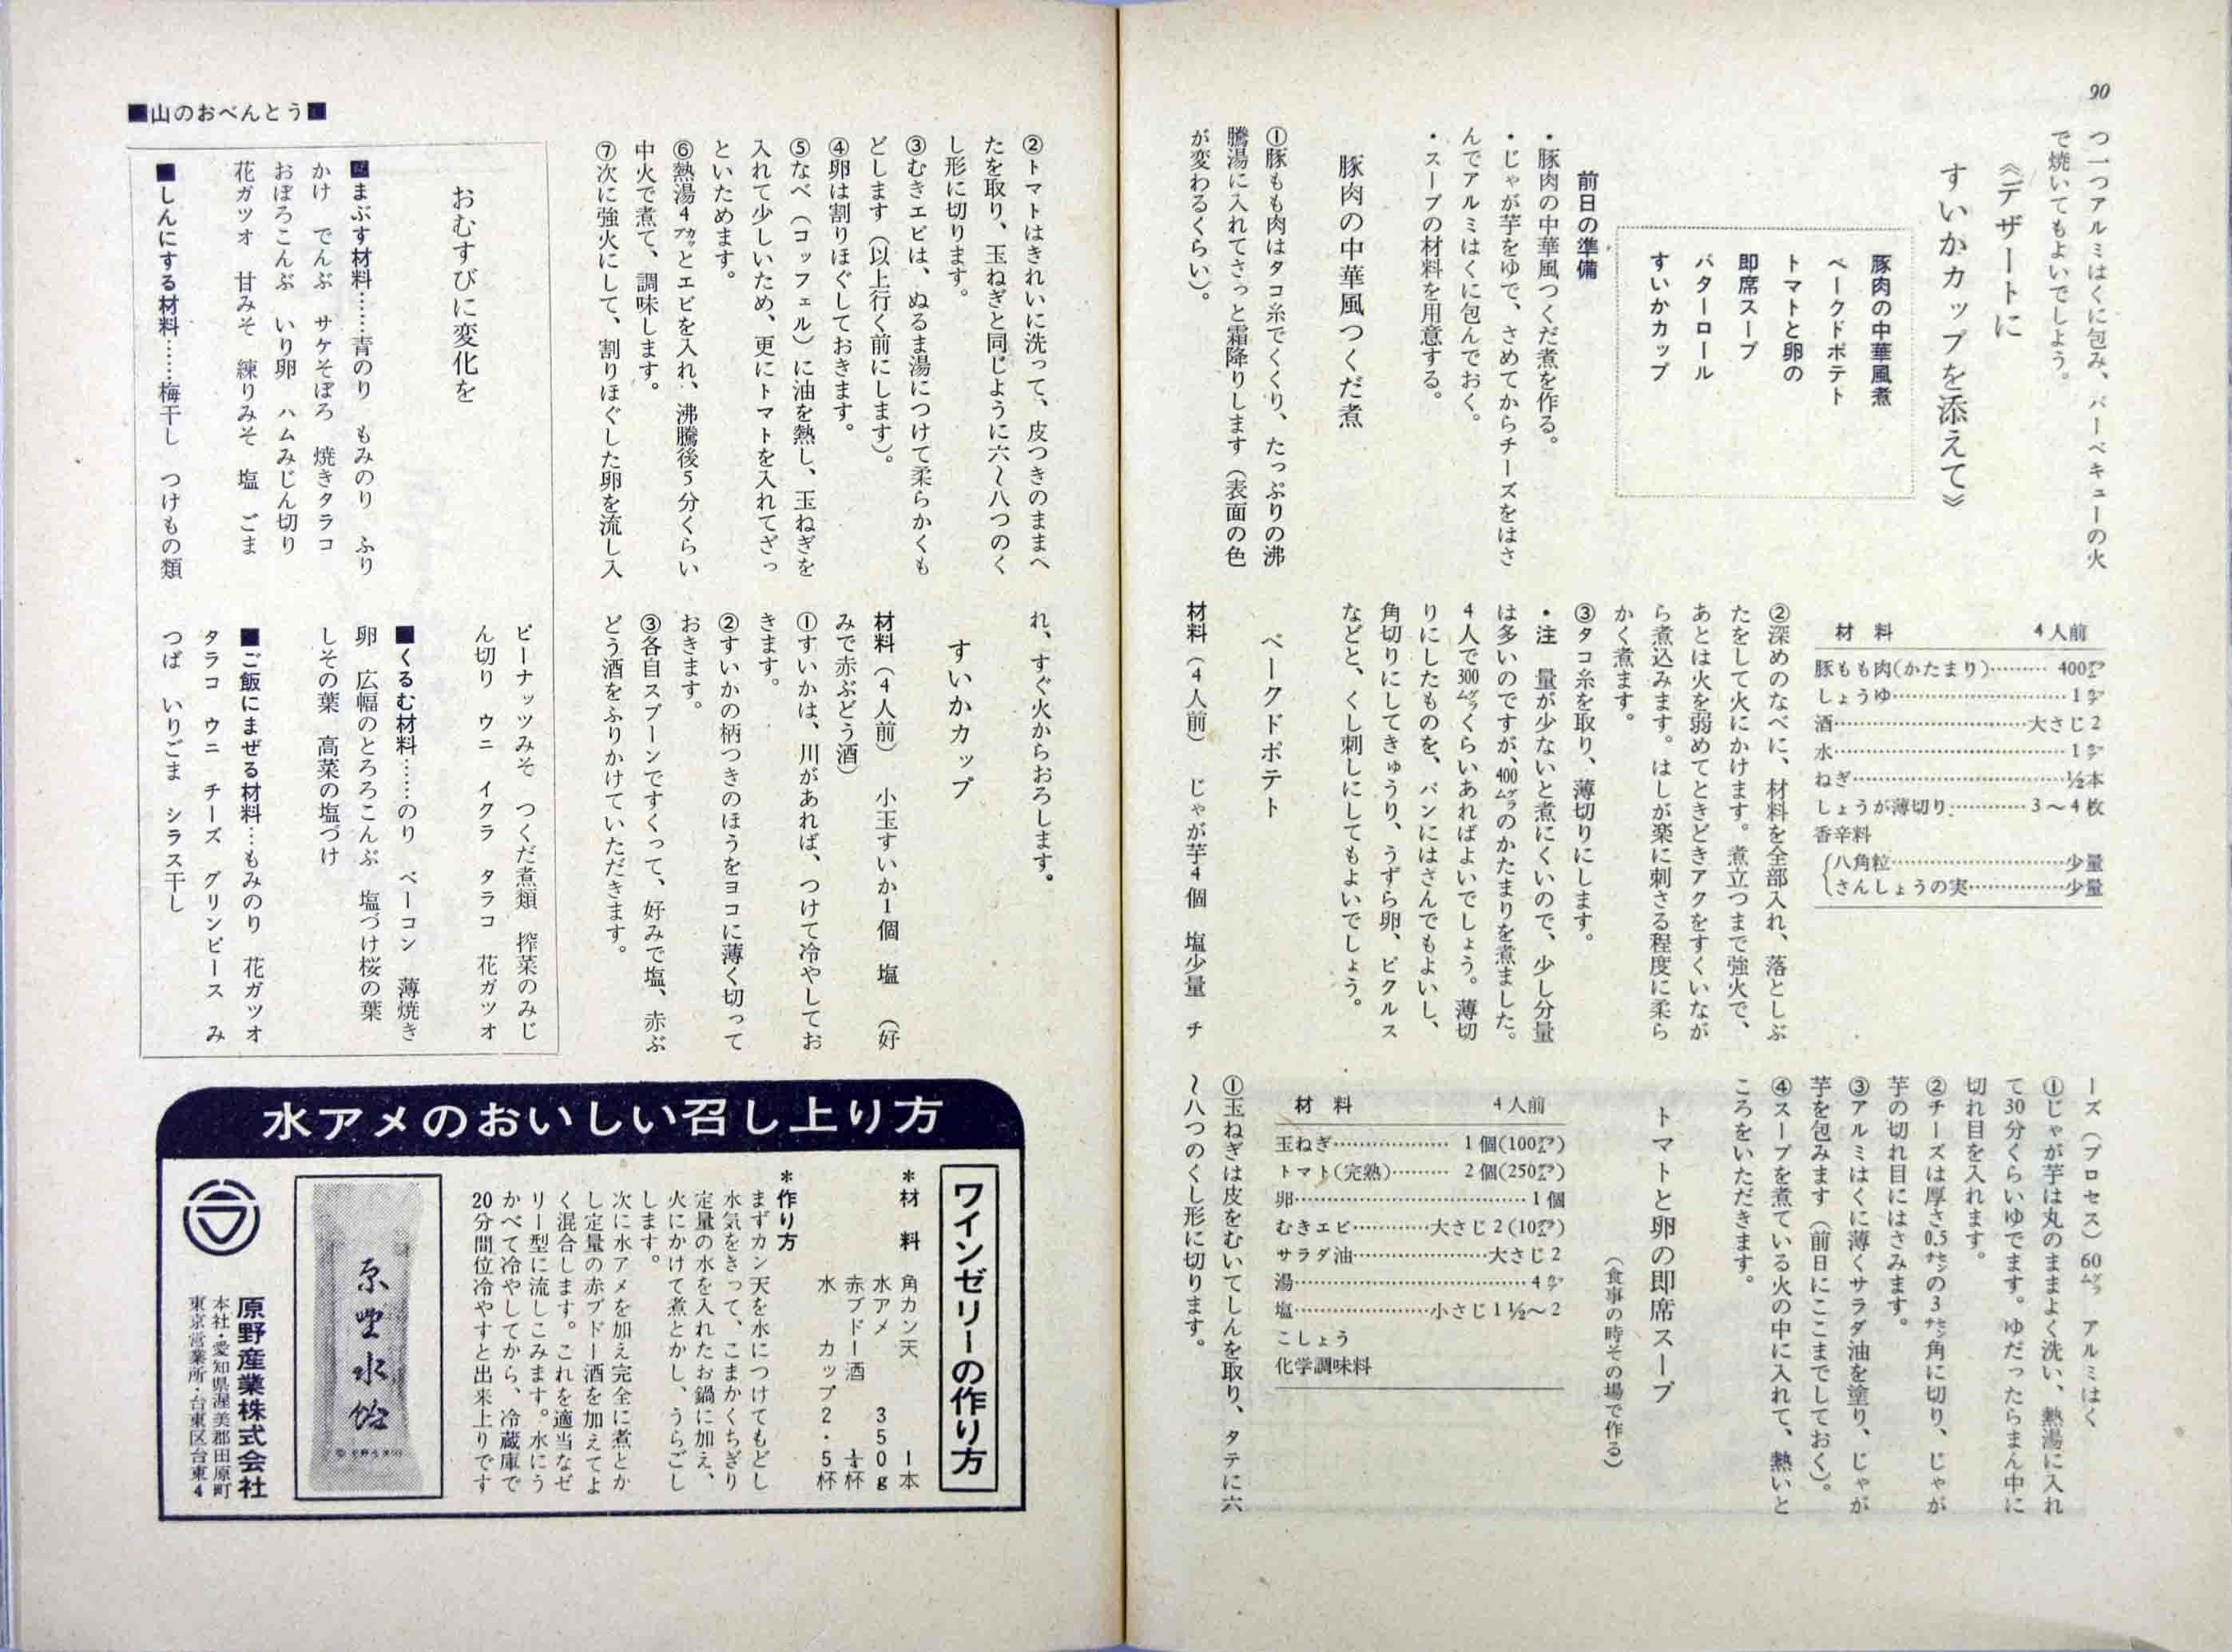 90
つ一つアルミはくに包み、バーベキューの火
で焼いてもよいでしょう。
《デザートに
すいかカップを添えて》
豚肉の中華風煮
ベークドポテト
トマトと卵の
即席スープ
バターロール
すいかカップ
前日の準備
・豚肉の中華風つくだ煮を作る。
・じゃが芋をゆで、さめてからチーズをはさ
んでアルミはくに包んでおく。
・スープの材料を用意する。
豚肉の中華風つくだ煮
①豚もも肉はタコ糸でくくり、たっぷりの沸
騰湯に入れてさっと霜降りします（表面の色
が変わるくらい）。
材料 4人前
豚もも肉(かたまり)……… 400㌘
しょうゆ………………………1㌍
酒…………………………大さじ2
水………………………………1㌍
ねぎ……………………………½本
しょうが薄切り…………3〜4枚
香辛料
八角粒………………………少量
さんしょうの実……………少量
②深めのなべに、材料を全部入れ、落としぶ
たをして火にかけます。煮立つまで強火で、
あとは火を弱めてときどきアクをすくいなが
ら煮込みます。はしが楽に刺さる程度に柔ら
かく煮ます。
③タコ糸を取り、薄切りにします。
・注　量が少ないと煮にくいので、少し分量
は多いのですが、400㌘のかたまりを煮ました。
4人で300㌘くらいあればよいでしょう。薄切
りにしたものを、パンにはさんでもよいし、
角切りにしてきゅうり、うずら卵、ピクルス
などと、くし刺しにしてもよいでしょう。
ベークドポテト
材料（4人前）　じゃが芋4個　塩少量　チ
ーズ（プロセス）60㌘　アルミはく
①じゃが芋は丸のままよく洗い、熱湯に入れ
て30分くらいゆでます。ゆだったらまん中に
切れ目を入れます。
②チーズは厚さ0.5㌢の3㌢角に切り、じゃが
芋の切れ目にはさみます。
③アルミはくに薄くサラダ油を塗り、じゃが
芋を包みます（前日にここまでしておく）。
④スープを煮ている火の中に入れて、熱いと
ころをいただきます。
トマトと卵の即席スープ
（食事の時その場で作る）
材料 4人前
玉ねぎ……………… 1個(100㌘)
トマト(完熟)……… 2個(250㌘)
卵………………………………1個
むきエビ…………大さじ2(10㌘)
サラダ油…………………大さじ2
湯………………………………4㌍
塩…………………小さじ1½〜2
こしょう
化学調味料
①玉ねぎは皮をむいてしんを取り、タテに六
〜八つのくし形に切ります。
②トマトはきれいに洗って、皮つきのままへ
たを取り、玉ねぎと同じように六〜八つのく
し形に切ります。
③むきエビは、ぬるま湯につけて柔らかくも
どします（以上行く前にします）。
④卵は割りほぐしておきます。
⑤なべ（コッフェル）に油を熱し、玉ねぎを
入れて少しいため、更にトマトを入れてざっ
といためます。
⑥熱湯4カップとエビを入れ、沸騰後5分くらい
中火で煮て、調味します。
⑦次に強火にして、割りほぐした卵を流し入
れ、すぐ火からおろします。
すいかカップ
材料（4人前）　小玉すいか1個　塩　（好
みで赤ぶどう酒）
①すいかは、川があれば、つけて冷やしてお
きます。
②すいかの柄つきのほうをヨコに薄く切って
おきます。
③各自スプーンですくって、好みで塩、赤ぶ
どう酒をふりかけていただきます。
■山のおべんとう■
おむすびに変化を
■まぶす材料……青のり　もみのり　ふり
かけ　でんぶ　サケそぼろ　焼きタラコ
おぼろこんぶ　いり卵　ハムみじん切り
花ガツオ　甘みそ　練りみそ　塩　ごま
■しんにする材料……梅干し　つけもの類
ピーナッツみそ　つくだ煮類　搾菜のみじ
ん切り　ウニ　イクラ　タラコ　花ガツオ
■くるむ材料……のり　ベーコン　薄焼き
卵　広幅のとろろこんぶ　塩づけ桜の葉
しその葉　高菜の塩づけ
■ご飯にまぜる材料…もみのり　花ガツオ
タラコ　ウニ　チーズ　グリンピース　み
つば　いりごま　シラス干し
水アメのおいしい召し上り方
ワインゼリーの作り方
*材料　角カン天　1本
水アメ　350g
赤ブドー酒　¼杯
水　カップ2・5杯
*作り方
まずカン天を水につけてもどし
水気をきって、こまかくちぎり
定量の水を入れたお鍋に加え、
火にかけて煮とかし、うらごし
します。
次に水アメを加え完全に煮とか
し定量の赤ブドー酒を加えてよ
く混合します。これを適当なゼ
リー型に流しこみます。水にう
かべて冷やしてから、冷蔵庫で
20分間位冷やすと出来上りです
原野水飴
原野産業株式会社
本社・愛知県渥美郡田原町
東京営業所・台東区台東4